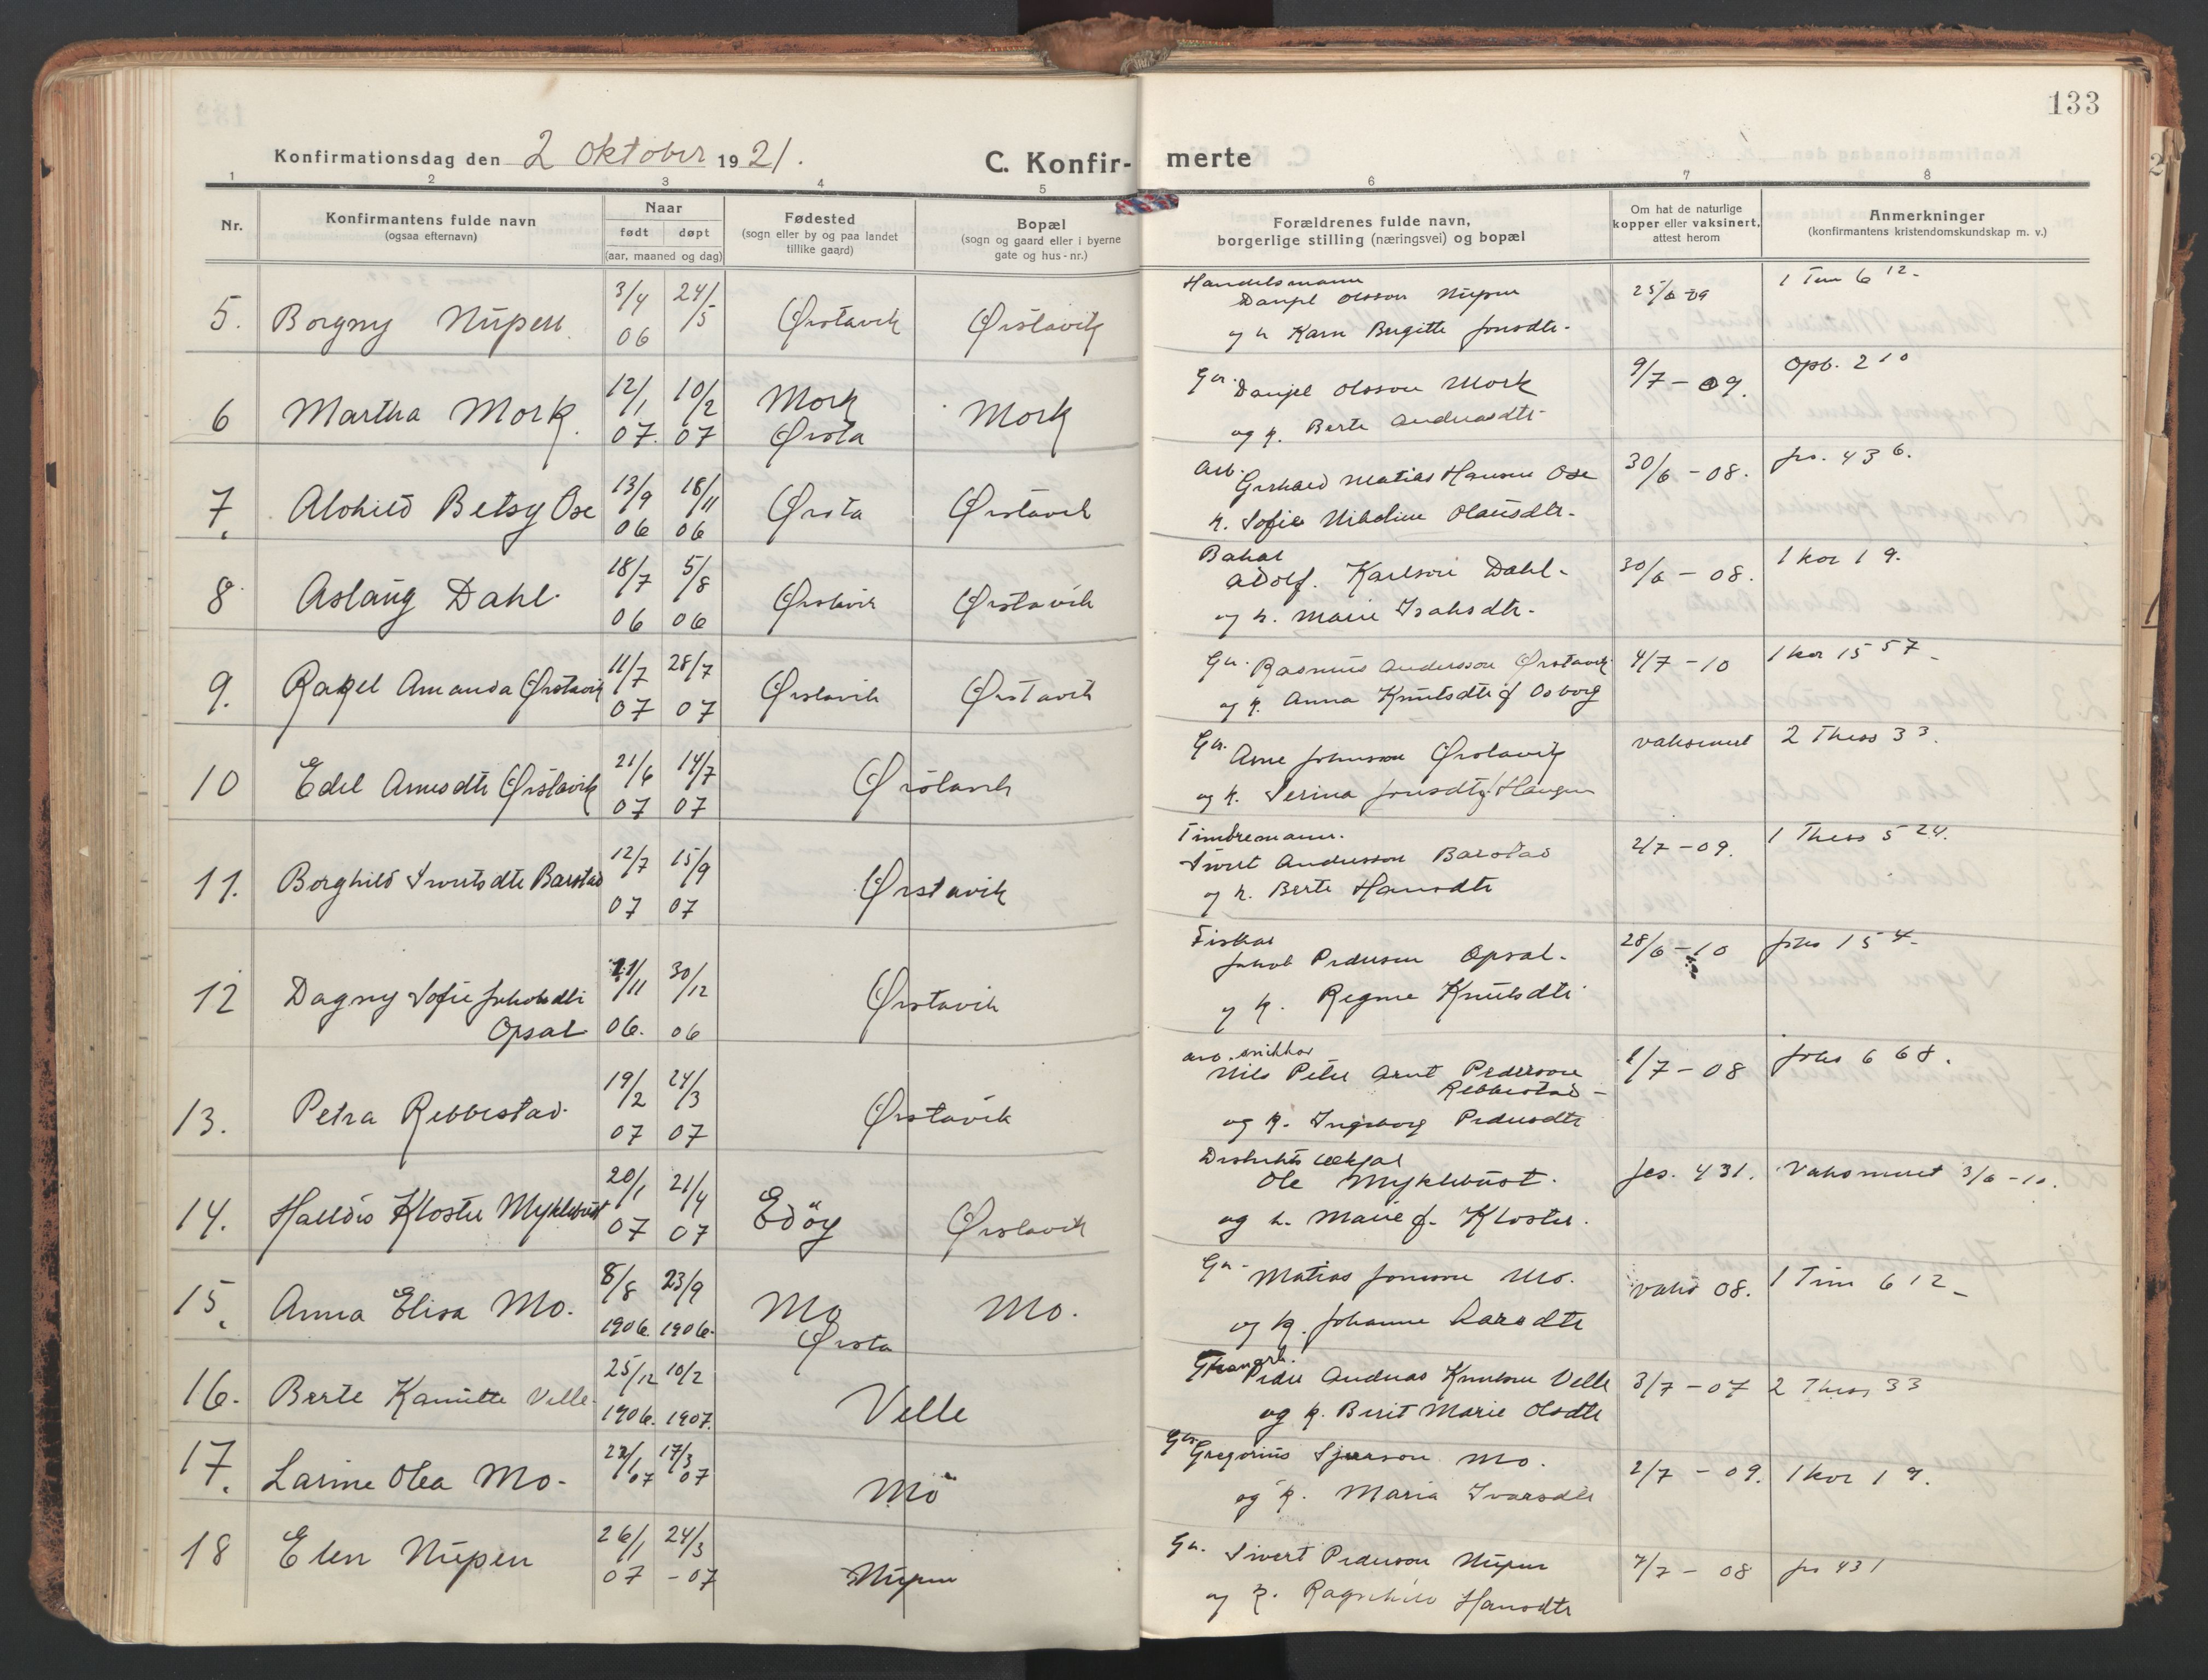 133
Konfirmationsdag den 2 Oktober 1921.
C. Konfir-
merte
1 2 3 4 5 6 7 8
Nr.
Konfirmantens fulde navn
(ogsaa efternavn)
Naar
født døpt
(aar, maaned og dag)
Fødested
(sogn eller by og paa landet
tillike gaard)
Bopæl
(sogn og gaard eller i byerne
gate og hus-nr.)
Forældrenes fulde navn,
borgerlige stilling (næringsvei) og bopæl
Om hat de naturlige
kopper eller vaksinert,
attest herom
Anmerkninger
(konfirmantens kristendomskundskap m. v.)
Handelsmann
5. Borgny Nupen 3/4 24/5 Ørstavik Ørstavik Danjel Olsson Nupen 25/6 09 1 Tim 6 12-
06 og k Karn Birgitte Jonsdtr-
6 Martha Mork. 12/1 10/2 Mork Mork Gm. Danjel Olsson Mork 9/7-09. Opb. 2 10
07. 07 Ørsta og k. Berte Andreasdtr-
7. Alohild Betsy Ose 13/9 18/11 Ørsta Ørstavik Arb. Gerhard Matias Hansen Ose 30/6-08. Jes. 43 6.
06 06 k. Sofie Nikoline Olausdtr-
Bakar
8 Aslaug Dahl. 18/7 5/8 Ørstavik Ørstavik Adolf. Karlson Dahl- 30/6-08. 1 Kor 1 9.
06 06 og k. Marie Isaksdtr-
9. Rakel Amanda Ørstavik 11/7 28/7 Ørstavik Ørstavik Gm. Rasmus Andersson Ørstavik 4/7-10 1 Kor 15 57-
07 07 og k. Anna Knutsdtr f Osborg
10 Edel Arnesdtr Ørstavik 21/6 14/7 Ørstavik Gm. Arne Johnsson Ørstavik vaksinert 2 Thess 3 3.
07 07 og k. Serina Jonsdtr f Haugen
Timbremann.
11. Borghild Sivertsdtr Barstad 12/7 15/9 Ørstavik Sivert Andersson Barstad 2/7-09. 1 Thess 5 24.
07 07 og k. Berte Hansdtr
Fiskar
12 Dagny Sofie Jakobsdtr 21/11 30/12 Ørstavik Jakob Pedersen Opsal. 28/6-10 Johs 15 4-
Opsal 06. 06 og k. Regine Knutsdtr
arb. snikkar
13. Petra Rebbestad. 19/2 24/3 Ørstavik Nils Peter Arnt Pederson 1/7-08 Johs 6 68.
Rebbestad-
07 07 og k. Ingeborg Pedersdtr
Distriktslækjar
14. Halldis Kloster Myklebust 20/1 21/4 Edöy Ørstavik Ole Myklebust. Jes. 43 1. Vaksinert 3/6-10.
07 07 og k. Marie f. Kloster.
15. Anna Elisa Mo. 8/8 23/9 Mo Mo. Gm- Matias Jonsson Mo. vaks 08. 1 Tim 6 12-
1906. 1906. Ørsta og k. Johanne Larsdtr
16. Berte Kamille Velle 25/12 10/2 Velle Peder Andreas Knutson Velle 3/7-07 2 Thess 3 3
1906. 1907. og k. Berit Marie Olsdtr
17. Larine Olea Mo- 22/1 17/3 Mo Gm Gregorius Sjurson Mo. 2/7-09. 1 Kor 1 9.
07 07 og k. Maria Ivarsdtr
18 Elen Nupen 26/1 24/3 Nupen Gm. Sivert Pederson Nupen 7/7-08 Jes 43 1
07-07 og k. Ragnhild Hansdtr